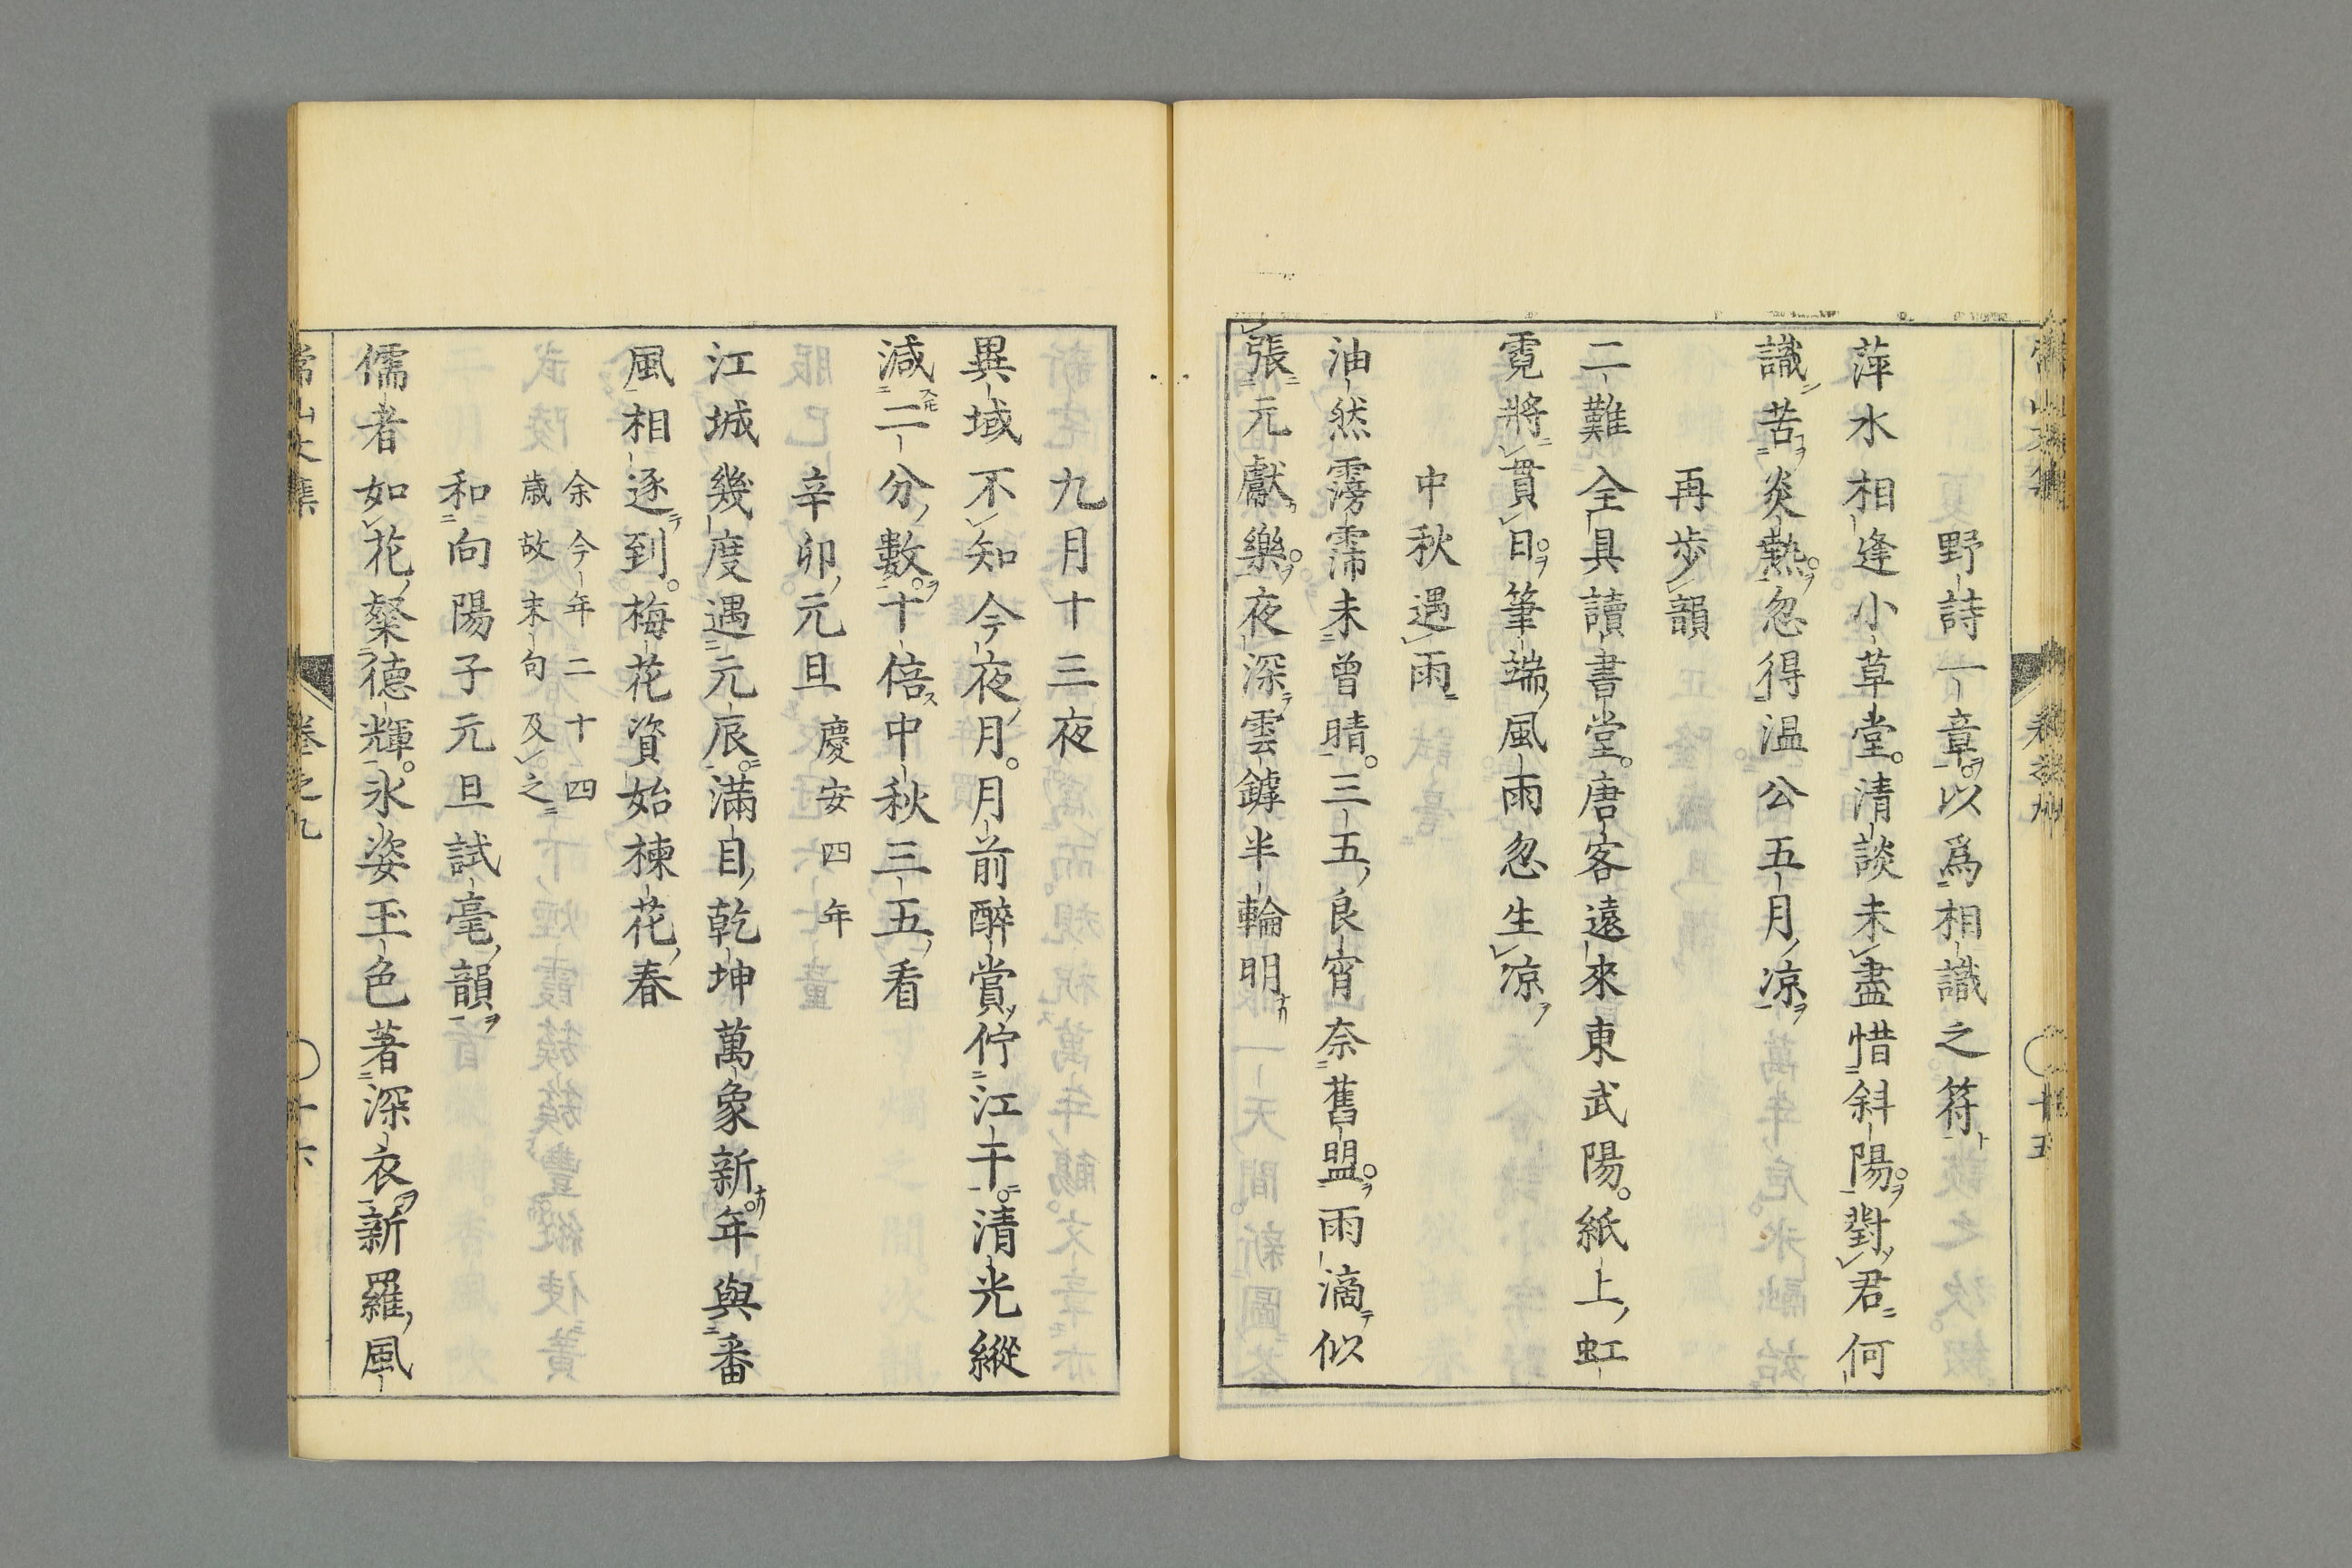 野詩一章以爲相識之符
萍水相逢小草堂。清談未盡惜斜陽。對君何
識苦炎熱。忽得温公五月凉
再歩韻
二難全具讀書堂。唐客遠來東武陽。紙上虹
霓將貫日。筆端風雨忽生凉
中秋遇雨
油然霶霈未曾晴。三五良宵奈舊盟。雨滴似
張元獻樂。夜深雲罅半輪明
九月十三夜
異域不知今夜月。月前醉賞佇江干。清光縱
減二分數。十倍中秋三五看
辛卯元旦 慶安四年
江城幾度遇元辰。滿目乾坤萬象新。年與番
風相逐到。梅花資始楝花春
余今年二十四
歳故末句及之
和向陽子元旦試毫韻
儒者如花粲德輝。氷姿玉色著深衣。新羅風
常山文集 卷之九 十六